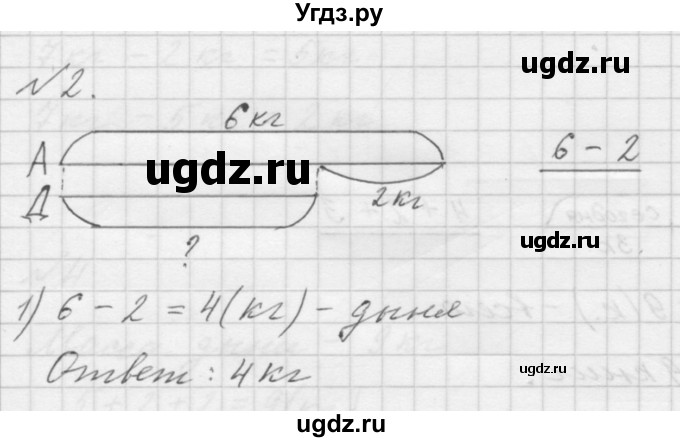 Угдз.ру
№2.
6 кг
А
6 - 2
Д
2 кг
?
1) 6 - 2 = 4 (кг) - дыня
Ответ: 4 кг
ugdz.ru
ugdz.ru
ugdz.ru
ugdz.ru
ugdz.ru
ugdz.ru